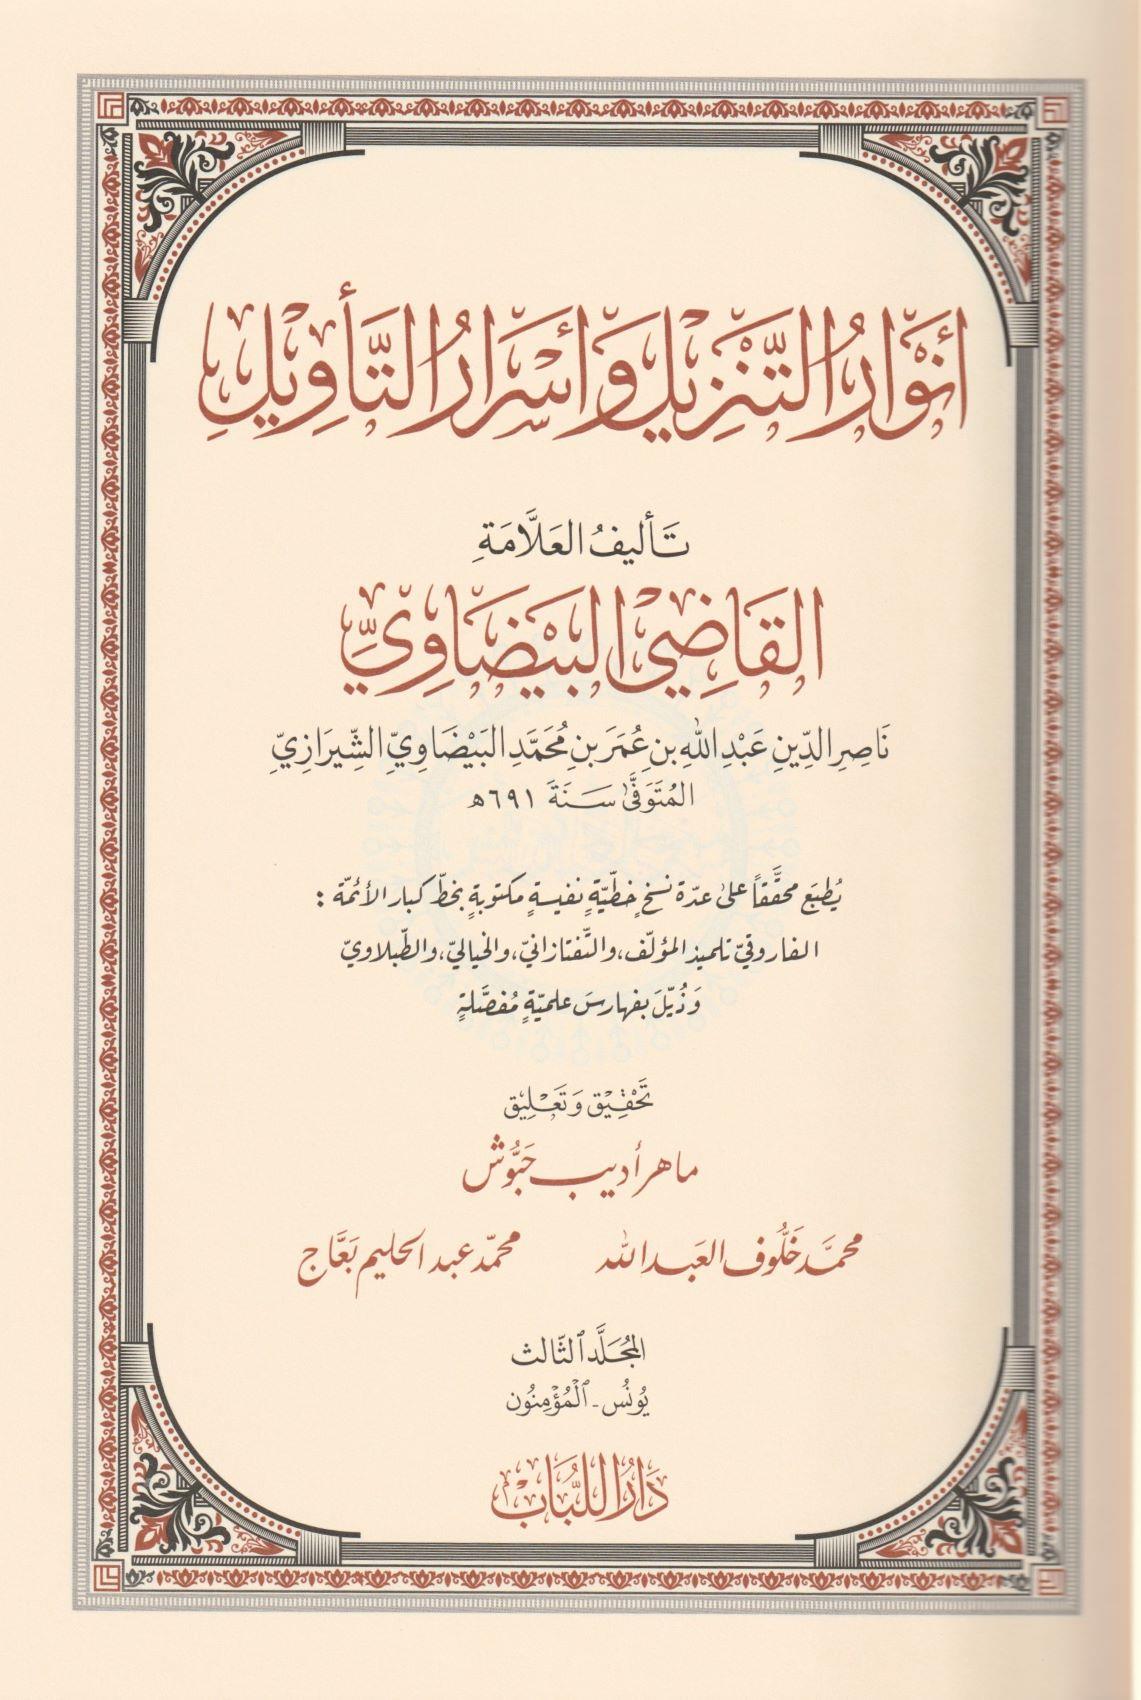 أَنْوَارُ التَّنْزِيلِ وَأَسْرَارُ التَّأْوِيلِ
تَأليفُ العَلَّامَةِ
القَاضِي البَيْضَاوِيِّ
نَاصِرِ الدِّينِ عَبْدِ اللهِ بنِ عُمَرَ بنِ مُحَمَّدِ البَيْضَاوِيِّ الشِّيرَازِيِّ
المُتَوَفَّىٰ سَنَةَ ٦٩١ه
يُطبَع محقَّقاً علىٰ عدّة نسخٍ خطّيّةٍ نفيسةٍ مكتوبةٍ بخطّ كبار الأئمّة :
الفاروقيّ تلميذ المؤلّف، والتّفتازانيّ، والخياليّ، والطّبلاويّ
وَذُيّلَ بفهارسَ علميّةٍ مُفصَّلةٍ
تَحْقِيْق وَتَعْلِيْق
ماهر أديب حَبُّوش
محمَّد خَلُّوف العَبد الله محمّد عبد الحليم بَعَّاج
المُجَلَّد الثَّالث
يُونُس - الْمُؤْمِنُون
دَارُ اللُّبَابْ